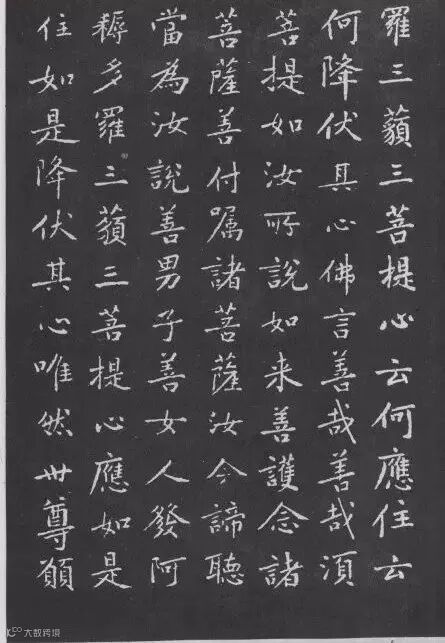 羅三藐三菩提心云何應住云
何降伏其心佛言善哉善哉須
菩提如汝所說如来善護念諸
菩薩善付嘱諸菩薩汝今諦聽
當為汝說善男子善女人發阿
耨多羅三藐三菩提心應如是
住如是降伏其心唯然世尊願
大数跨境